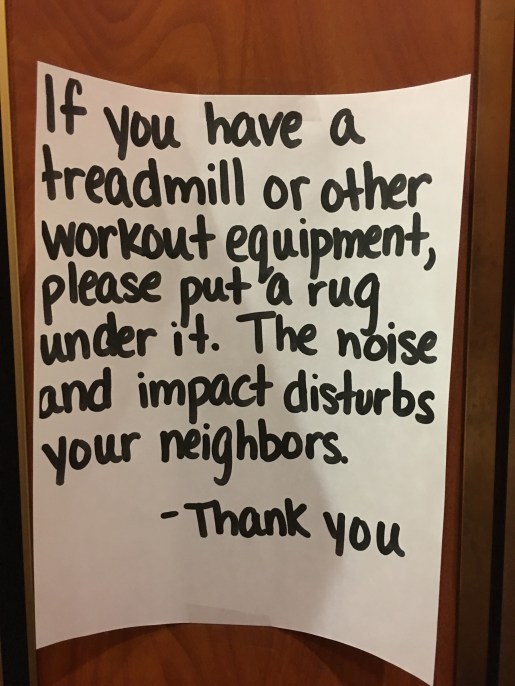 If you have a
treadmill or other
workout equipment,
please put a rug
under it. The noise
and impact disturbs
your neighbors.
-Thank you